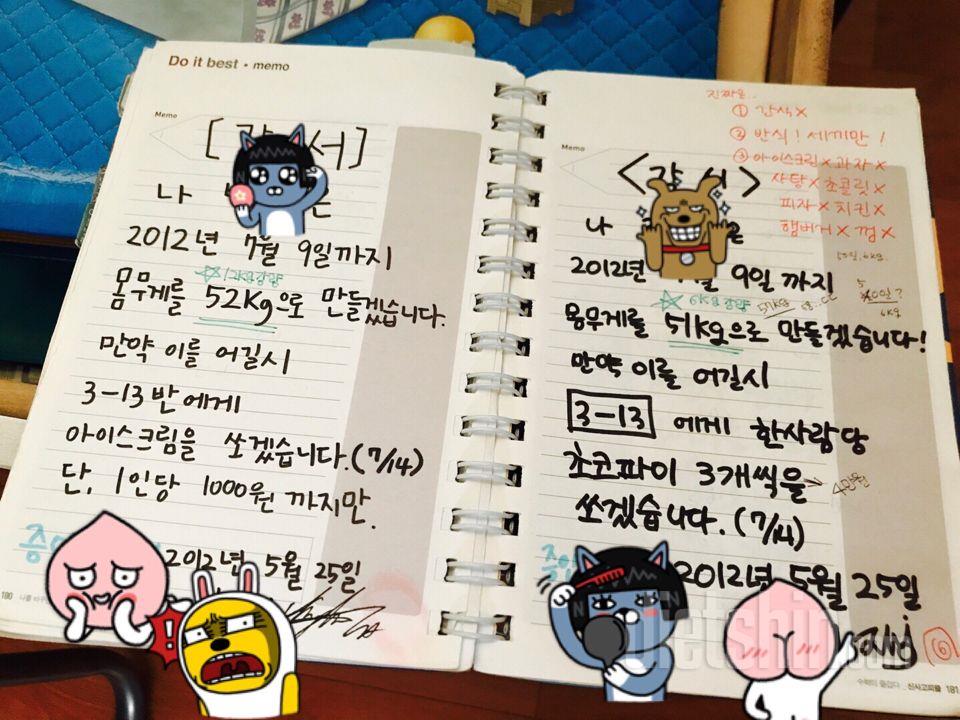 Do it best • memo
Memo
[각 서]
나 은
2012년 7월 9일까지
몸무게를 52kg으로 만들겠습니다.
만약 이를 어길시
3-13반에게
아이스크림을 쏘겠습니다.(7/14)
단, 1인당 1000원 까지만.
증
2012년 5월 25일
180
진짜로..
① 간식×
② 반식! 세끼만!
③ 아이스크림× 과자×
사탕× 초콜릿×
피자× 치킨×
햄버거× 껌×
Memo
<각 서>
나 은
2012년 월 9일 까지
6kg감량
57kg
6kg
몸무게를 51kg으로 만들겠습니다!
만약 이를 어길시
3-13 에게 한사람당
초코파이 3개씩을
쏘겠습니다.(7/14)
증
2012년 5월 25일
⑥
수학이 즐겁다_신사고피플 181
dietshin